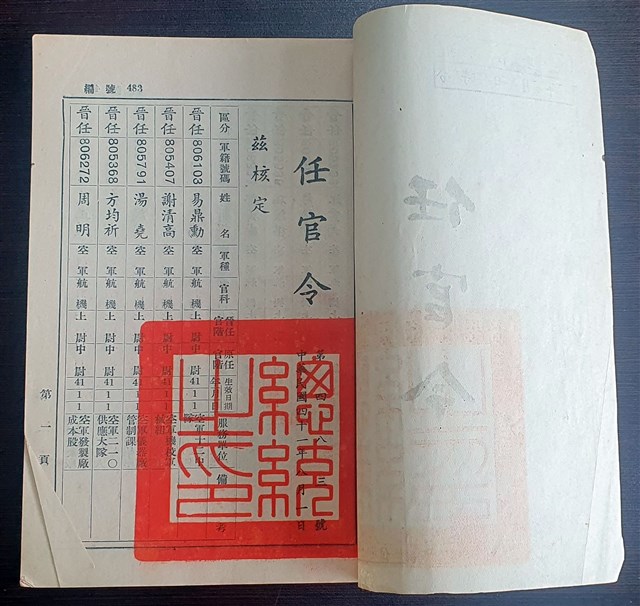 號欄 483
任官令
第四八三號
中華民國四十一年 月一日
茲核定
區分 軍籍號碼 姓名 軍種 官科 晉任官階 原任官階 生效日期 年月日 服務單位 備考
晉任 806103 易鼎勳 空軍 航機 上尉 中尉 41 1 1 空軍十二中隊
晉任 805407 謝清高 空軍 航機 上尉 中尉 41 1 1
晉任 805791 湯堯 空軍 航機 上尉 中尉 41 1 1 管制課
晉任 805368 方均祈 空軍 航機 上尉 中尉 41 1 1 空軍二一〇供應大隊
晉任 806272 周明 空軍 航機 上尉 中尉 41 1 1 空軍發製廠成本股
第一頁
總統之印